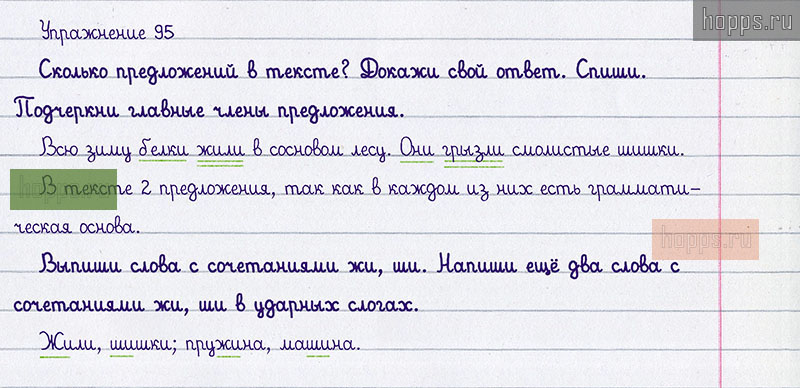 hopps.ru
Упражнение 95
Сколько предложений в тексте? Докажи свой ответ. Спиши.
Подчеркни главные члены предложения.
Всю зиму белки жили в сосновом лесу. Они грызли смолистые шишки.
В тексте 2 предложения, так как в каждом из них есть граммати-
ческая основа.
hopps.ru
Выпиши слова с сочетаниями жи, ши. Напиши ещё два слова с
сочетаниями жи, ши в ударных слогах.
Жили, шишки; пружина, машина.